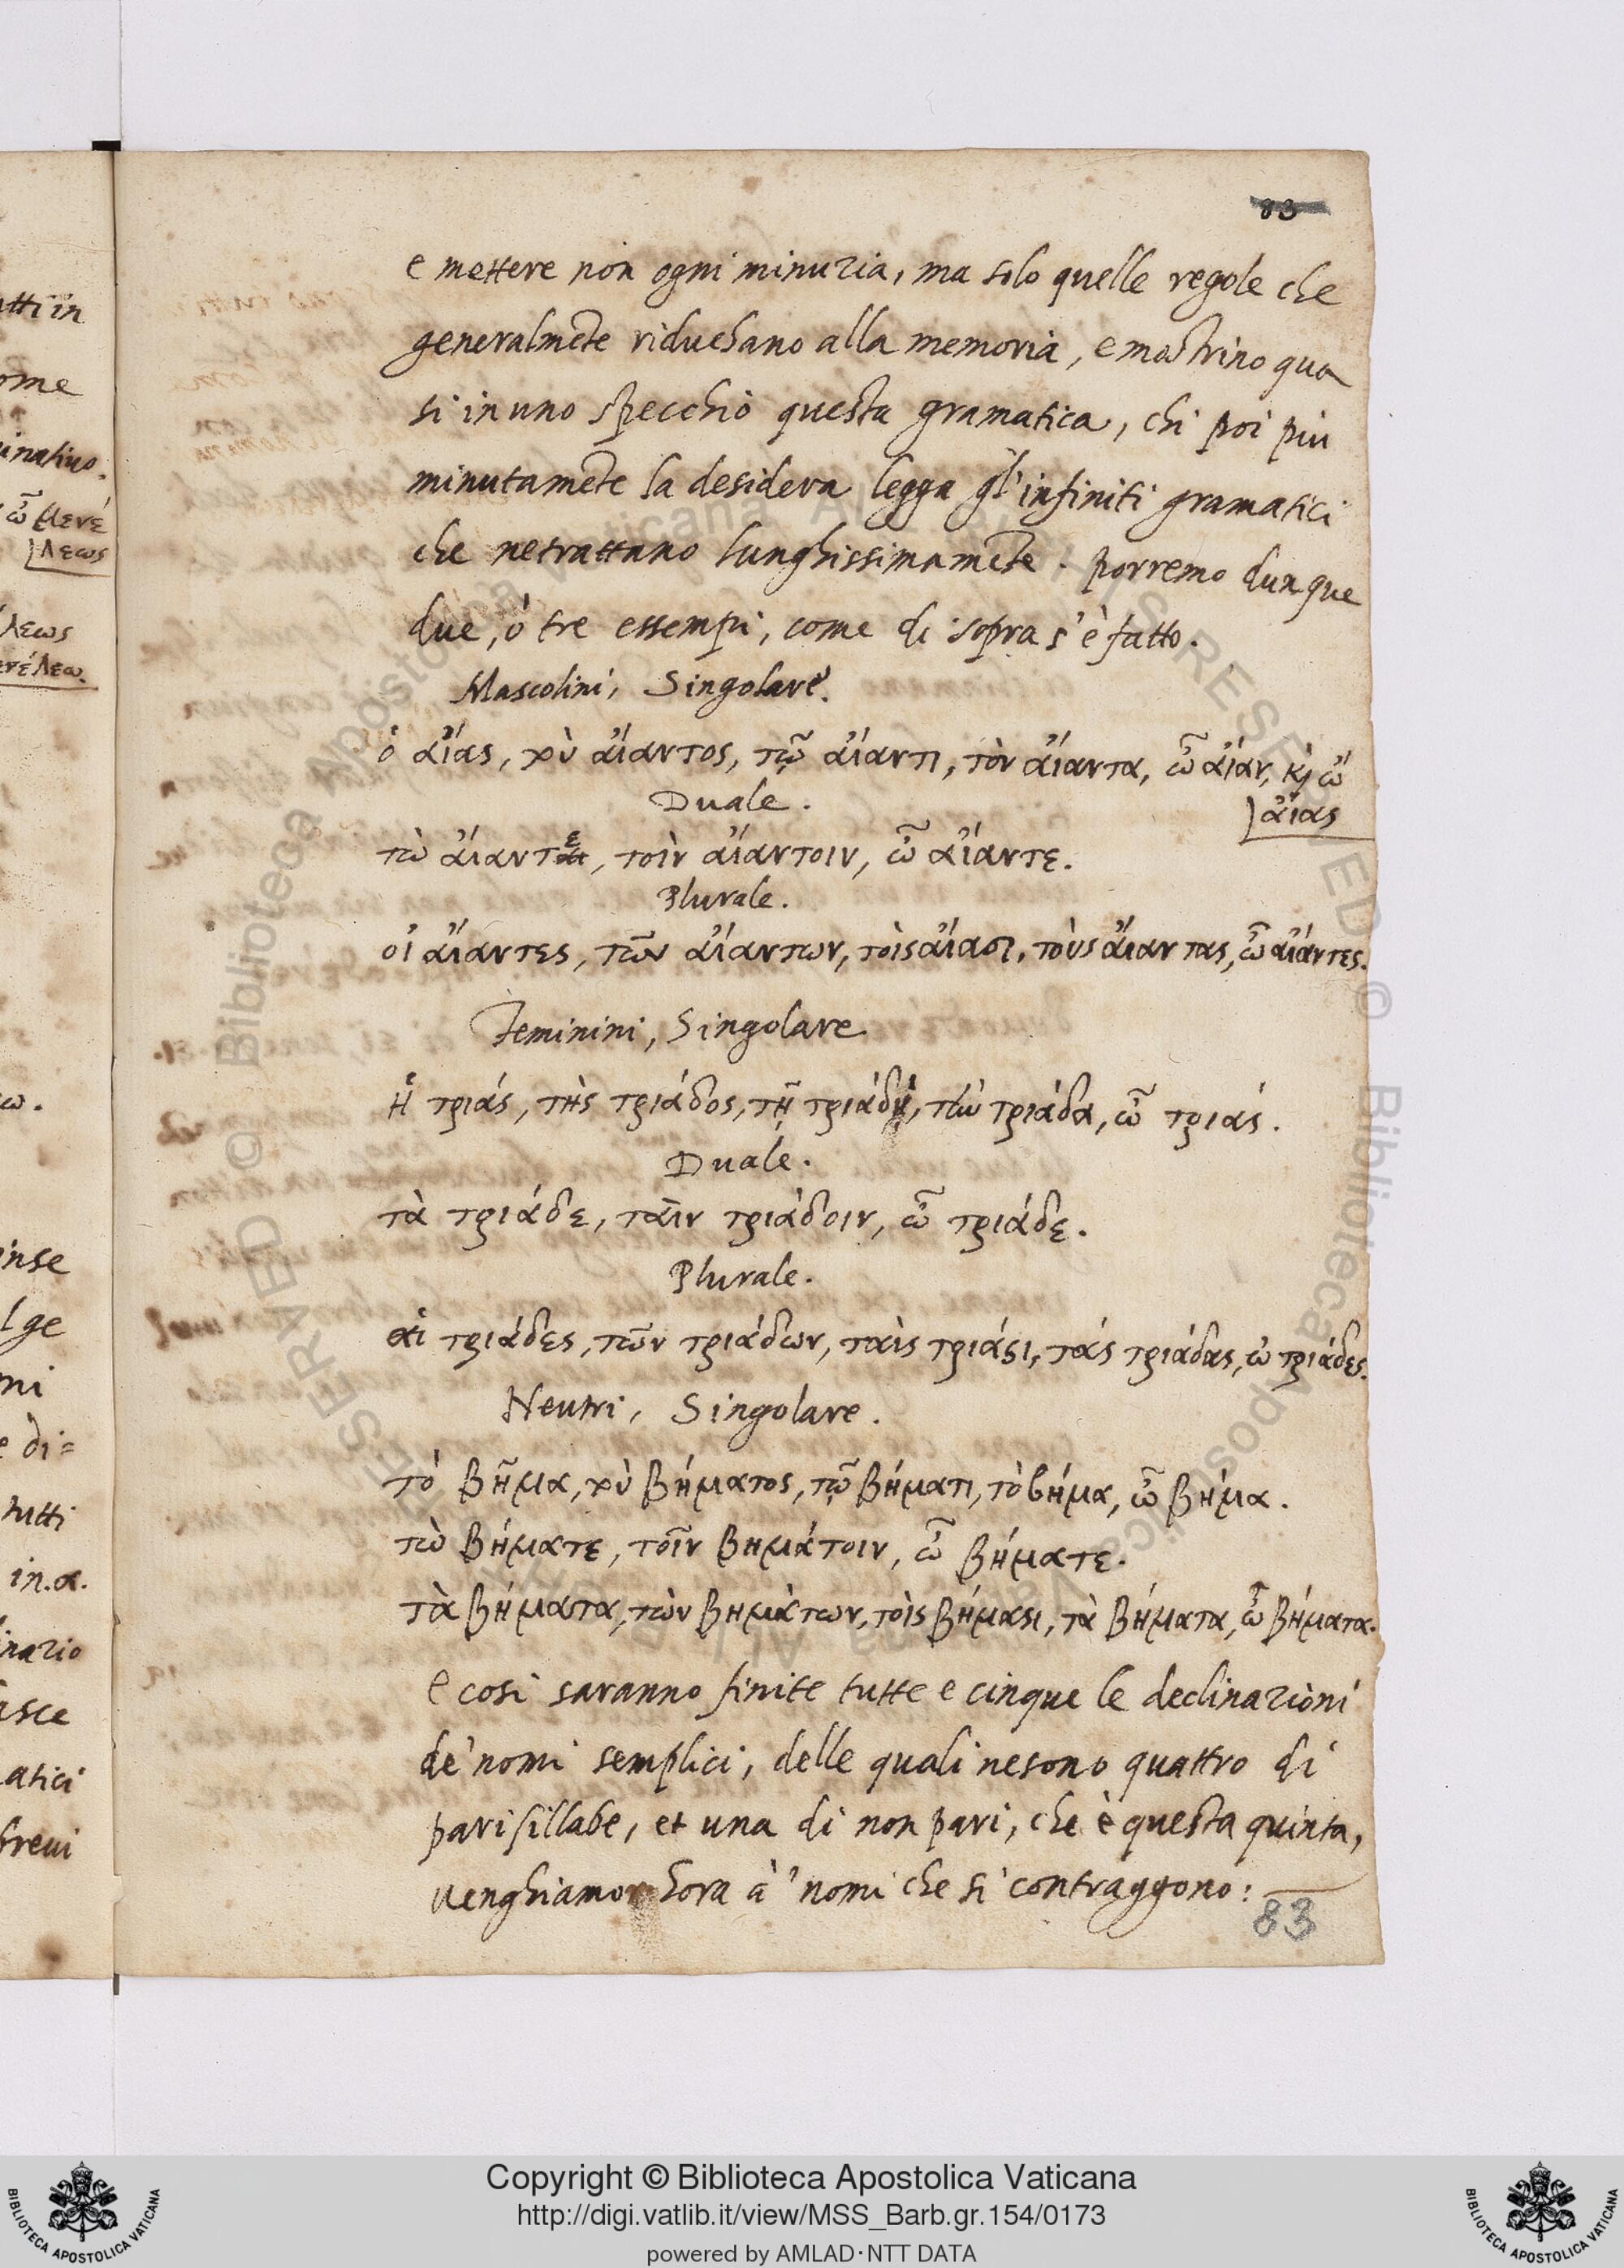 83
e mettere non ogni minuzia, ma solo quelle regole che
generalmẽte riduchano alla memoria, e mostrino qua
si in uno specchio questa gramatica, chi poi più
minutamẽte la desidera legga gl'infiniti gramatici
che netrattano lunghissimamẽte. porremo dunque
due, ò tre essempi, come di sopra s'è fatto.
Mascolini, Singolare.
ὁ αἴας, τοὺ αἴαντος, τῷ αἴαντι, τὸν αἴαντα, ὦ αἴαν, κỳ ὦ
αἴας
Duale.
τὼ αἴαντε, τοὶν αἴαντοιν, ὦ αἴαντε.
Plurale.
οἱ αἴαντες, τῶν αἴαντων, τὸις αἴασι, τοὺς αἴαντας, ὦ αἴάντες.
Feminini, Singolare
ἡ τριάς, τὴς τριάδος, τῇ τριάδι, τὴν τριάδα, ὦ τριάς.
Duale.
τὰ τριάδε, τᾶιν τριάδοιν, ὦ τριάδε.
Plurale.
αἱ τριάδες, τῶν τριάδων, ταὶς τριάσι, τάς τριάδας, ὦ τριάδες.
Neutri, Singolare.
τὸ βῆμα, τοὺ βήματος, τῷ βήματι, τὸ βήμα, ὦ βήμα.
τὼ βήματε, τοῖν βημάτοιν, ὦ βήματε.
τὰ βήματα, τὼν βημάτων, τὸις βήμασι, τὰ βήματα, ὦ βήματα.
e cosi saranno finite tutte e cinque le declinazioni
de' nomi semplici, delle quali nesono quattro di
pari sillabe, et una di non pari, che è questa quinta,
uenghiamo hora à' nomi che si contraggono:
83
Copyright © Biblioteca Apostolica Vaticana
http://digi.vatlib.it/view/MSS_Barb.gr.154/0173
powered by AMLAD·NTT DATA
BIBLIOTECA APOSTOLICA VATICANA
BIBLIOTECA APOSTOLICA VATICANA